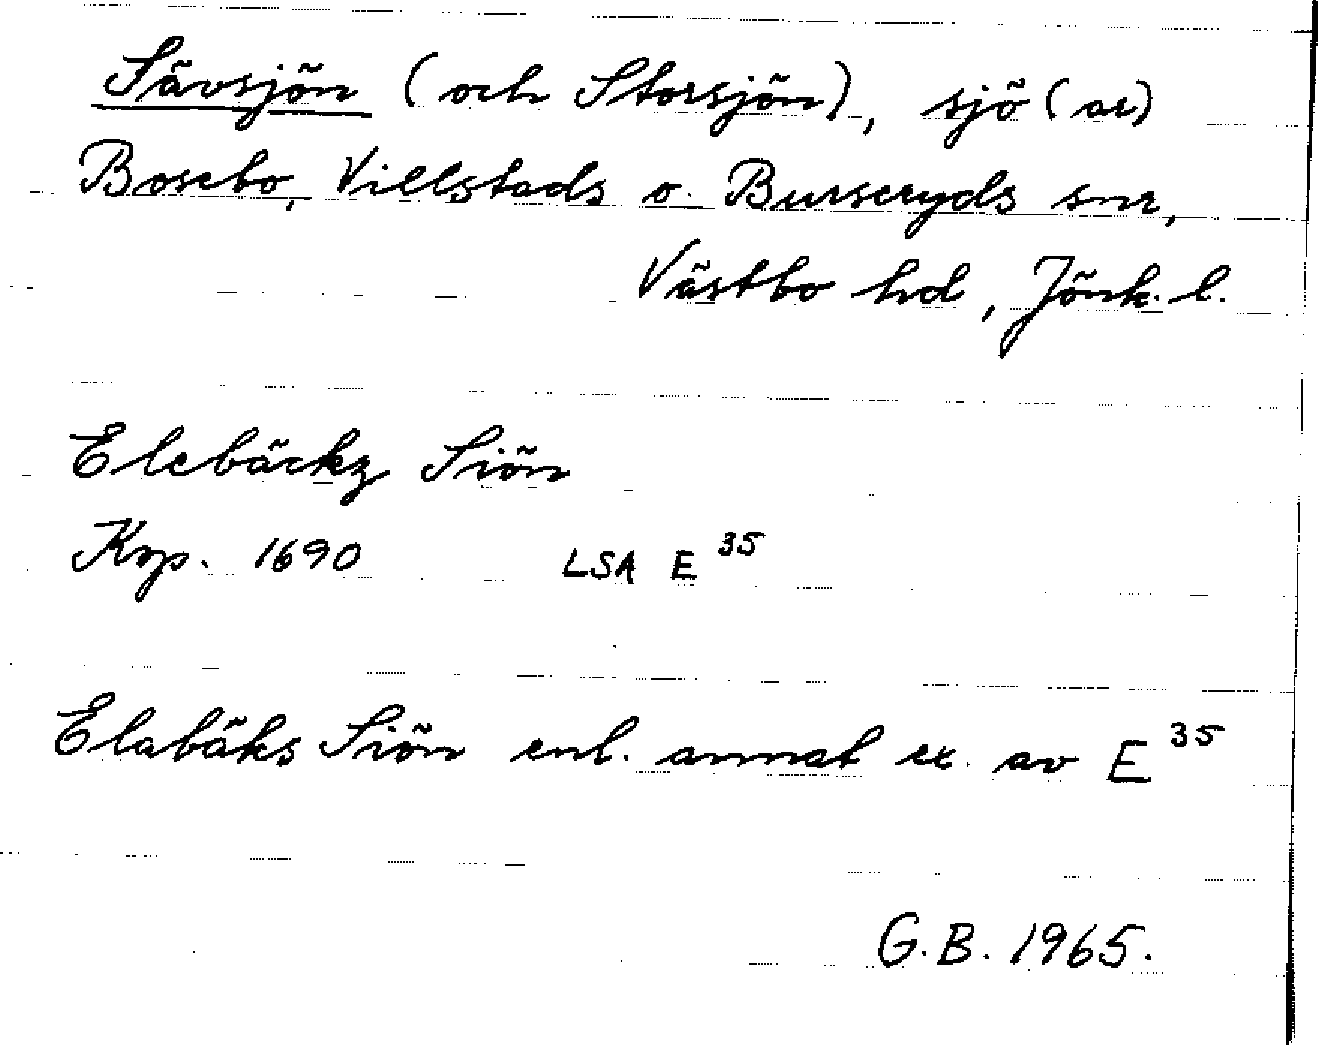 Sävsjön (och Storsjön), sjö(ar)
Bosebo, Villstads o. Burseryds snr,
Västbo hd, Jönk. l.
Elebäckz Siön
Kop. 1690 LSA E 35
Elabäks Siön enl. annat ex. av E 35
G.B. 1965.